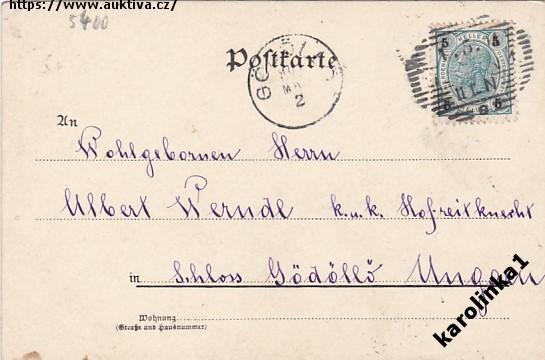 https://www.auktiva.cz/
5400
Postkarte
5 HELLER 5
WIEN
2
An
Wohlgebornen Herrn
Albert Werndl k. u. k. Hofreitknecht
in Schloss Gödöllő Ungarn
Wohnung
(Straße und Hausnummer)
karolinka1